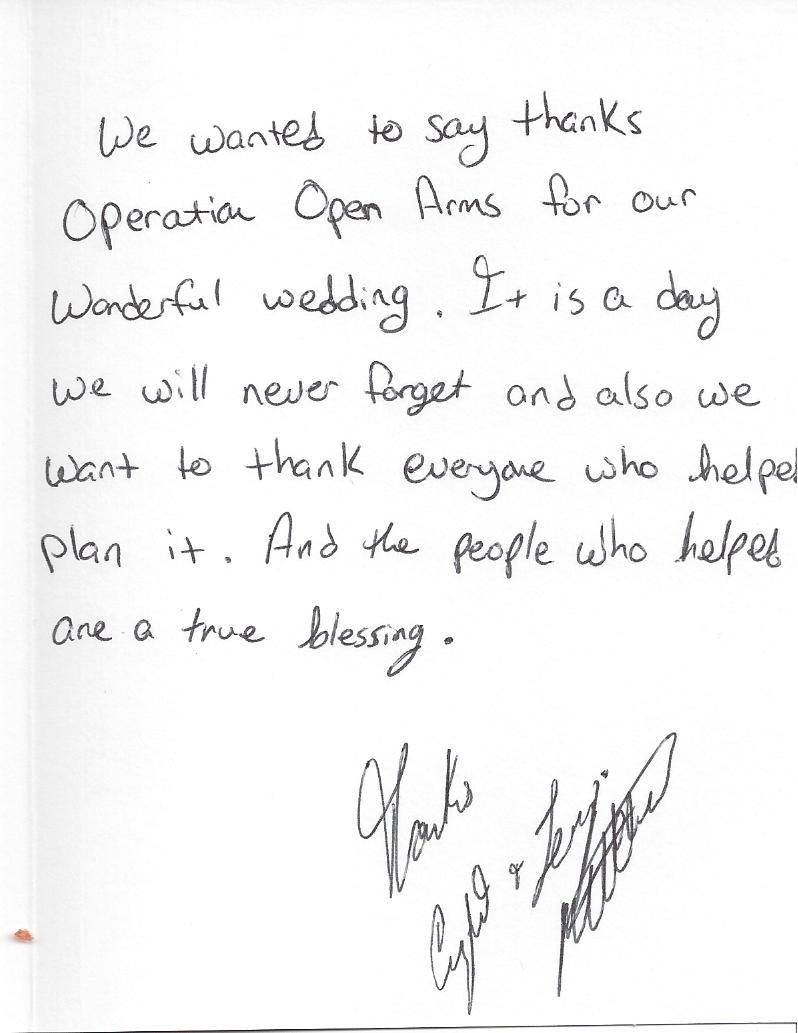 We wanted to say thanks
Operation Open Arms for our
Wonderful wedding. It is a day
we will never forget and also we
want to thank everyone who helped
plan it. And the people who helped
are a true blessing.
Thanks
&